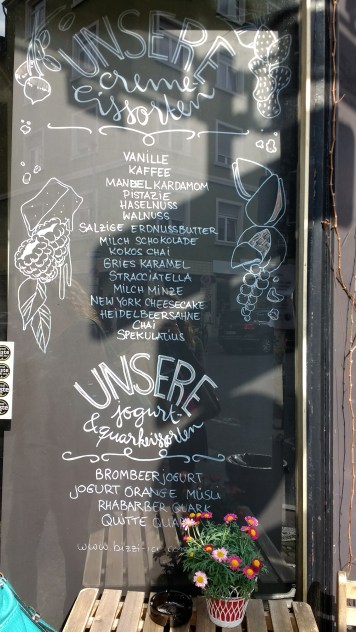 UNSERE
creme-
Eissorten
VANILLE
KAFFEE
MANDELKARDAMOM
PISTAZIE
HASELNUSS
WALNUSS
SALZIGE ERDNUSSBUTTER
MILCH SCHOKOLADE
KOKOS CHAI
GRIES KARAMEL
STRACCIATELLA
MILCH MINZE
NEW YORK CHEESECAKE
HEIDELBEERSAHNE
CHAI
SPEKULATIUS
UNSERE
jogurt-
& quarkeissorten
BROMBEERJOGURT
JOGURT ORANGE MÜSLI
RHABARBER QUARK
QUITTE QUARK